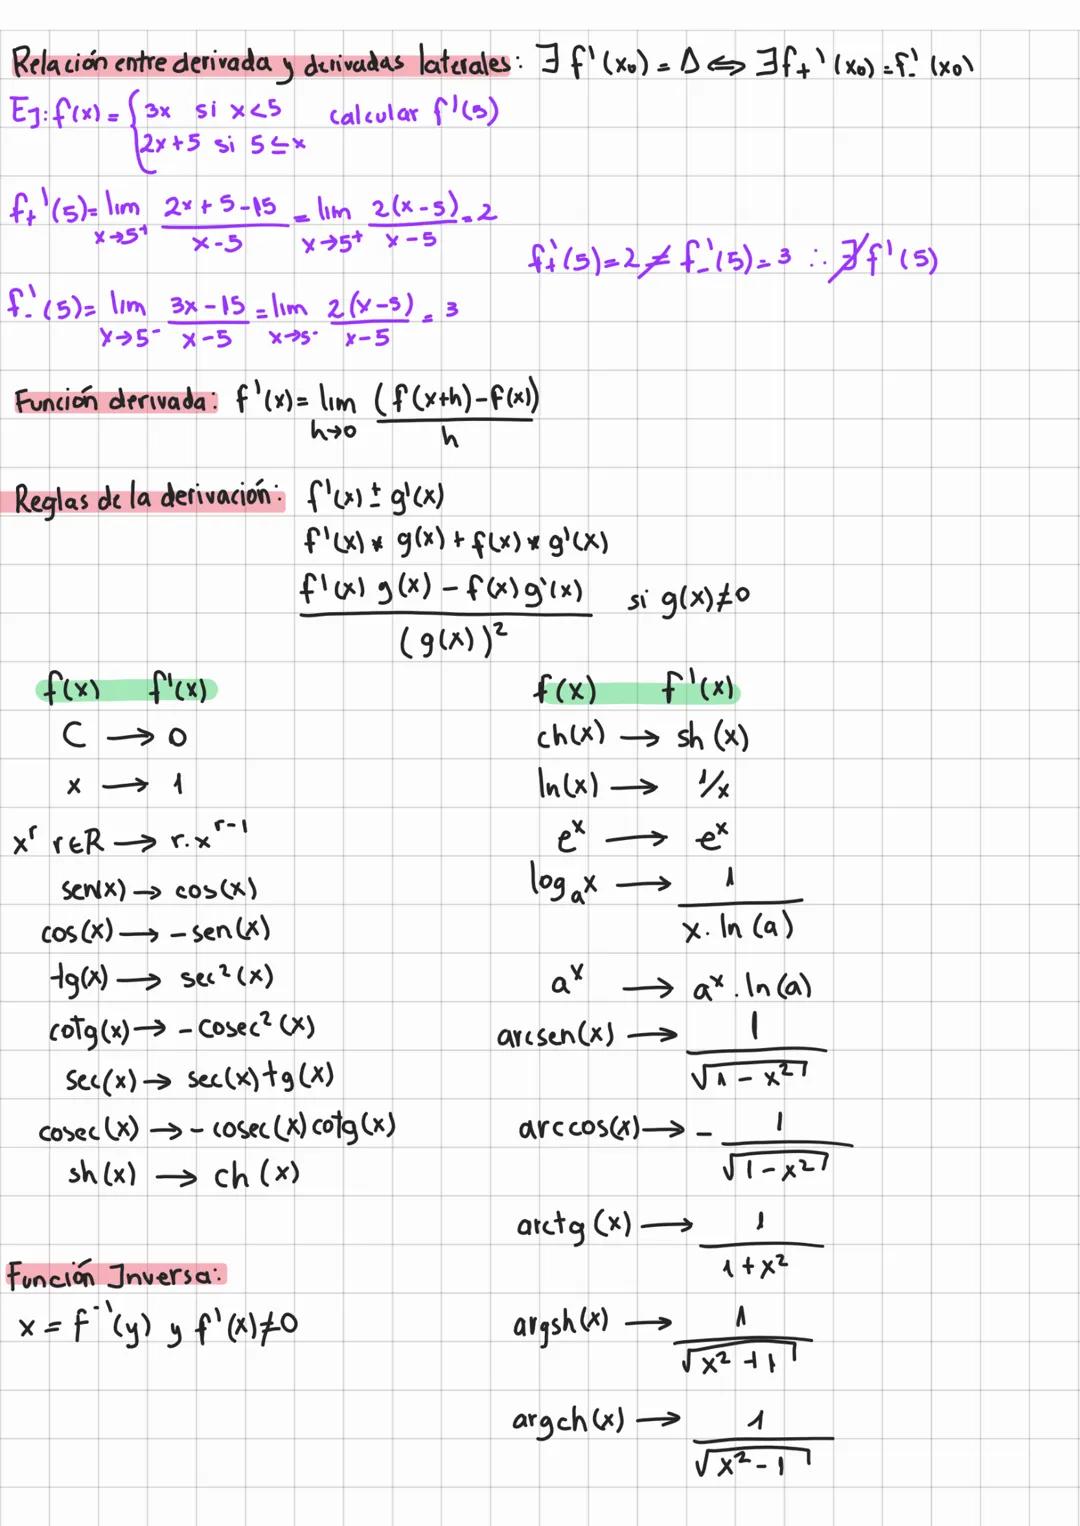 Relación entre derivada y derivadas laterales: ∃ f'(x₀) = Δ ⟺ ∃f₊'(x₀) = f₋'(x₀)
Ej: f(x) = { 3x si x<5 calcular f'(5)
2x+5 si 5≤x
f₊'(5) = lím x→5⁺ (2x+5-15)/(x-5) = lím x→5⁺ 2(x-5)/(x-5) = 2
f₊'(5) = 2 ≠ f₋'(5) = 3 ∴ ∄ f'(5)
f₋'(5) = lím x→5⁻ (3x-15)/(x-5) = lím x→5⁻ 2(x-5)/(x-5) = 3
Función derivada: f'(x) = lím h→0 (f(x+h)-f(x))/h
Reglas de la derivación: f'(x) ± g'(x)
f'(x) * g(x) + f(x) * g'(x)
(f'(x) g(x) - f(x) g'(x))/(g(x))² si g(x)≠0
f(x) f'(x)
C → 0
x → 1
xʳ r∈R → r.xʳ⁻¹
sen(x) → cos(x)
cos(x) → -sen(x)
tg(x) → sec²(x)
cotg(x) → -cosec²(x)
sec(x) → sec(x)tg(x)
cosec(x) → -cosec(x)cotg(x)
sh(x) → ch(x)
Función Inversa:
x = f⁻¹(y) y f'(x)≠0
f(x) f'(x)
ch(x) → sh(x)
ln(x) → 1/x
eˣ → eˣ
logₐx → 1/(x.ln(a))
aˣ → aˣ.ln(a)
arcsen(x) → 1/√(1-x²)
arccos(x) → -1/√(1-x²)
arctg(x) → 1/(1+x²)
argsh(x) → 1/√(x²+1)
argch(x) → 1/√(x²-1)